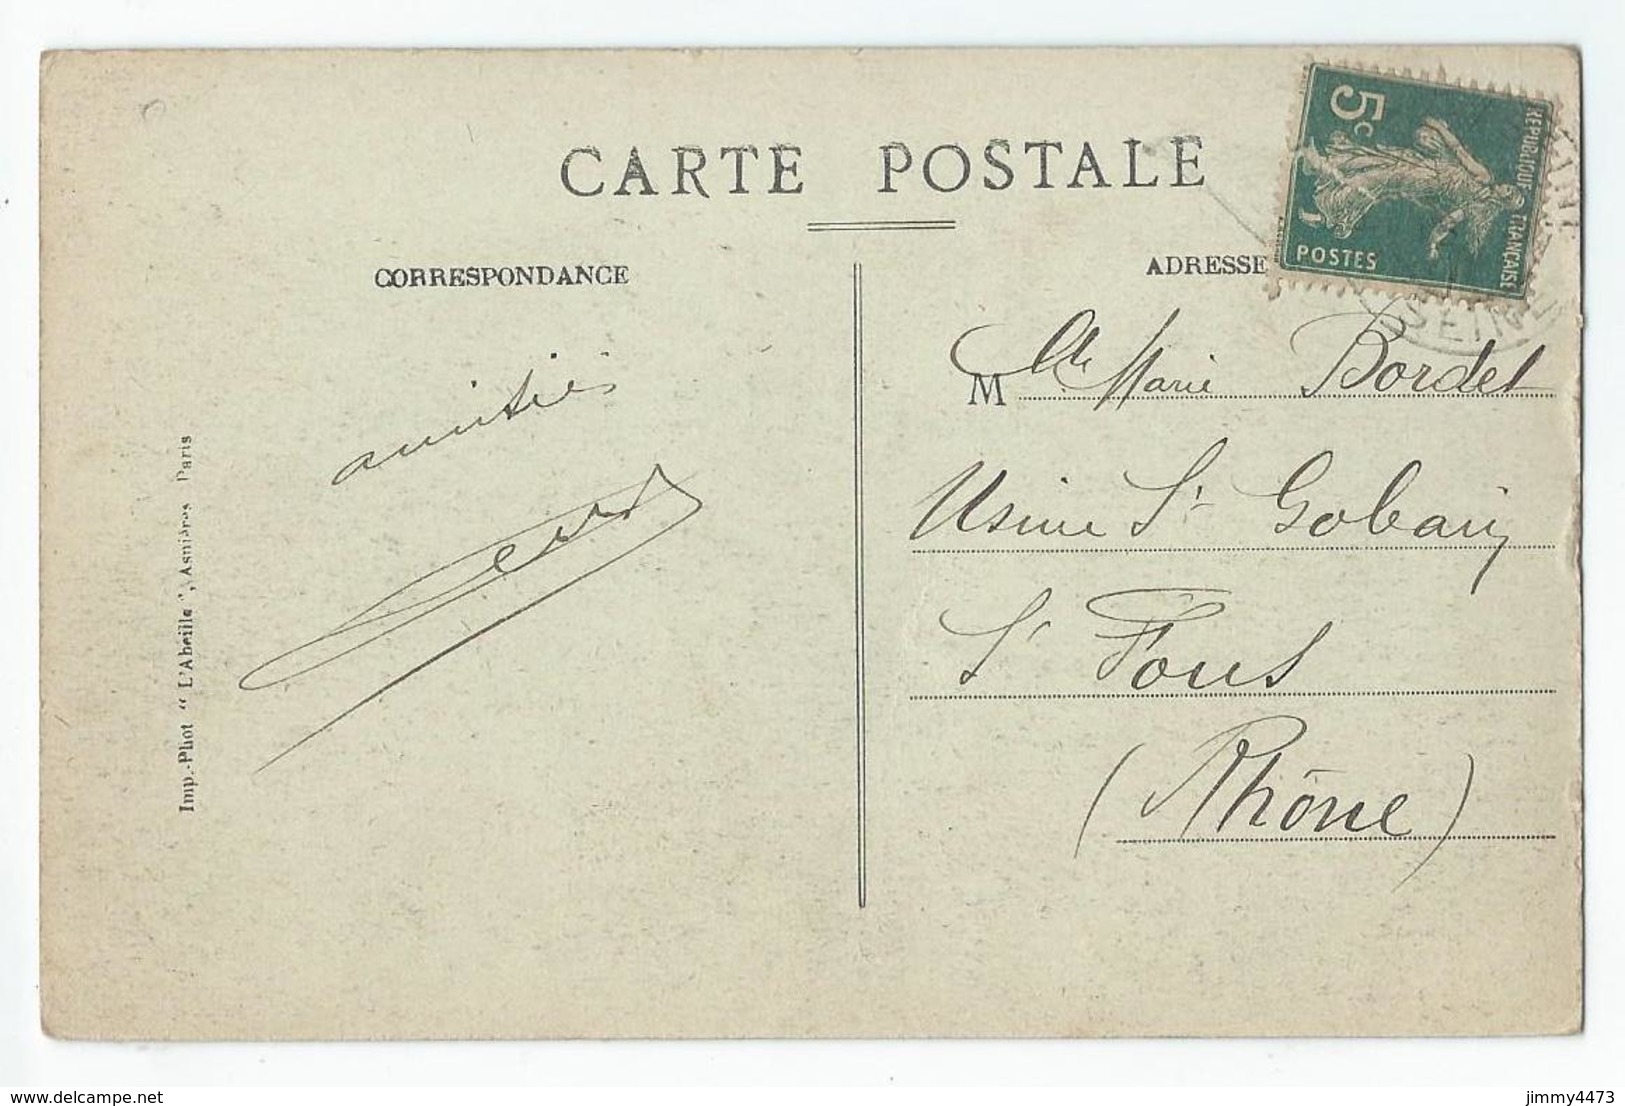 CARTE POSTALE
CORRESPONDANCE
amitiés
Imp.-Phot "L'Abeille", Asnières Paris
ADRESSE
5c
REPUBLIQUE FRANÇAISE
POSTES
SEINE
Mlle Marie Bordet
Usine St Gobain
St Fons
(Rhône)
www.delcampe.net
jimmy4473